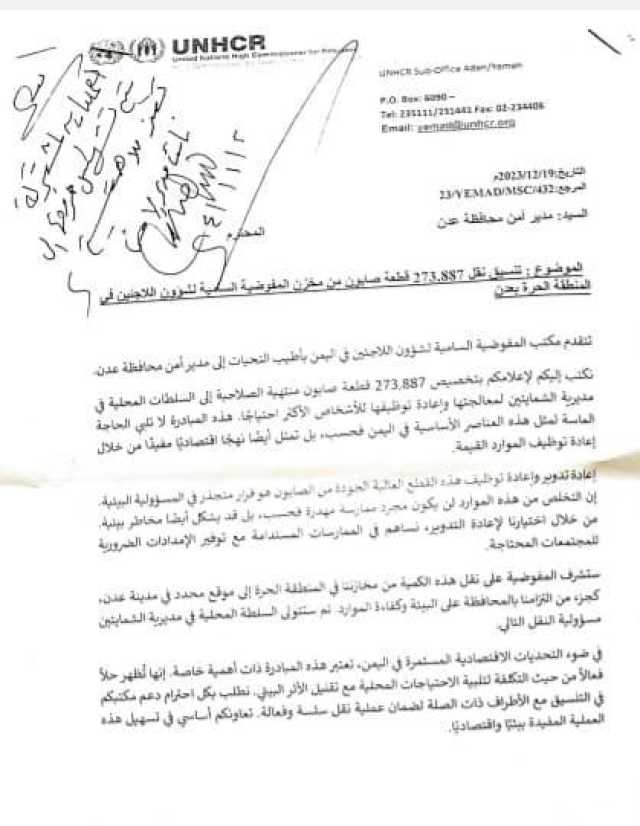 UNHCR
United Nations High Commissioner for Refugees
UNHCR Sub-Office Aden/Yemen
P.O. Box: 6090 –
Tel: 235111/231441 Fax: 02-234406
Email: yemad@unhcr.org
التاريخ: 2023/12/19م
المرجع: 23/YEMAD/MSC/432
السيد: مدير أمن محافظة عدن
المحترم
الموضوع : تنسيق نقل 273,887 قطعة صابون من مخزن المفوضية السامية لشؤون اللاجئين في
المنطقة الحرة بعدن
يتقدم مكتب المفوضية السامية لشؤون اللاجئين في اليمن بأطيب التحيات إلى مدير أمن محافظة عدن.
نكتب إليكم لإعلامكم بتخصيص 273,887 قطعة صابون منتهية الصلاحية إلى السلطات المحلية في
مديرية الشمايتين لمعالجتها وإعادة توظيفها للأشخاص الأكثر احتياجًا. هذه المبادرة لا تلبي الحاجة
الماسة لمثل هذه العناصر الأساسية في اليمن فحسب، بل تمثل أيضًا نهجًا اقتصاديًا مفيدًا من خلال
إعادة توظيف الموارد القيمة.
إعادة تدوير وإعادة توظيف هذه القطع العالية الجودة من الصابون هو قرار متجذر في المسؤولية البيئية.
إن التخلص من هذه الموارد لن يكون مجرد ممارسة مهدرة فحسب، بل قد يشكل أيضًا مخاطر بيئية.
من خلال اختيارنا لإعادة التدوير، نساهم في الممارسات المستدامة مع توفير الإمدادات الضرورية
للمجتمعات المحتاجة.
ستشرف المفوضية على نقل هذه الكمية من مخازننا في المنطقة الحرة إلى موقع محدد في مدينة عدن،
كجزء من التزامنا بالمحافظة على البيئة وكفاءة الموارد. ثم ستتولى السلطة المحلية في مديرية الشمايتين
مسؤولية النقل التالي.
في ضوء التحديات الاقتصادية المستمرة في اليمن، تعتبر هذه المبادرة ذات أهمية خاصة. إنها تُظهر حلاً
فعالاً من حيث التكلفة لتلبية الاحتياجات المحلية مع تقليل الأثر البيئي. نطلب بكل احترام دعم مكتبكم
في التنسيق مع الأطراف ذات الصلة لضمان عملية نقل سلسة وفعالة. تعاونكم أساسي في تسهيل هذه
العملية المفيدة بيئيًا واقتصاديًا.